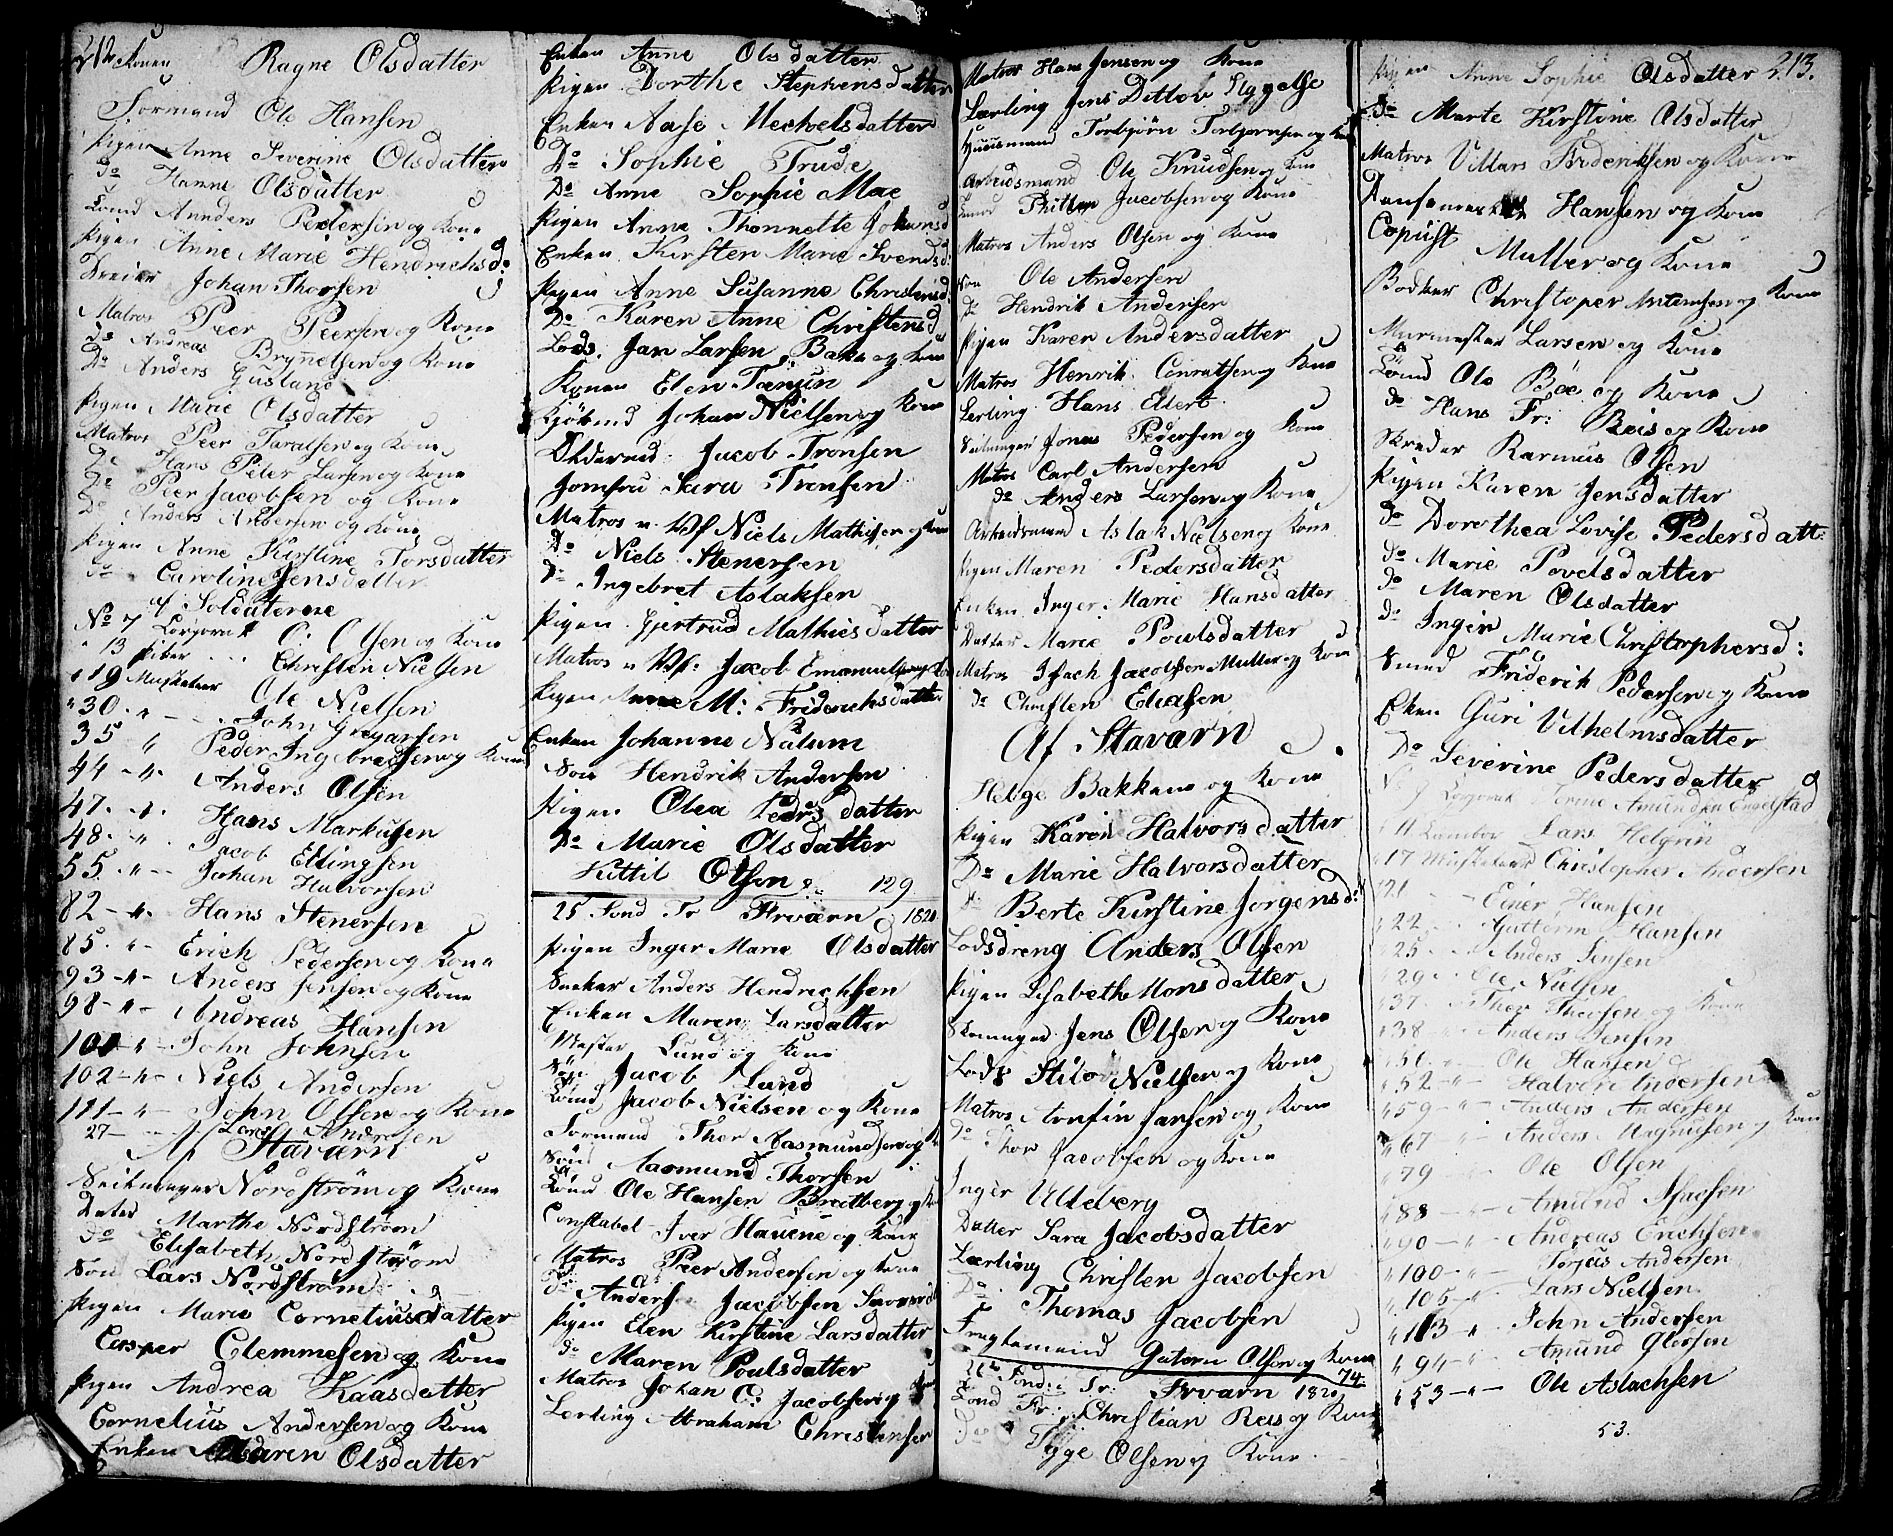 212 Konen Ragne Olsdatter
Formand Ole Hansen
Pigen Anne Severine Olsdatter
Do Hanne Olsdatter
Lond Annders Pedersen og Kone
Pigen Anne Marie Hendrichsd:
Dreier Johan Thorsen
Matros Peer Peersen og Kone
Do Andreas Brynnelsen og Kone
Do Anders Gusland
Pigen Marie Olsdatter
Matros Peer Taralsen og Kone
Do Hans Peter Larsen og Kone
Do Peer Jacobsen og Kone
Do Anders Andersen og Kone
Pigen Anne Kirstine Torsdatter
Do Caroline Jensdatter
af Soldaterne
No 7 Corporal O: Olsen og Kone
" 13 Piber Christen Nielsen
" 19 Musketeer Ole Nielsen
" 30 - " - John Gregarsen
35 " Peder Ingebretsen og Kone
44 - " - Anders Olsen
47 - " - Hans Markusen
48 - " - Jacob Ellingsen
55 - " - Johan Halvorsen
82 - " - Hans Stenersen
85 - " - Erich Pedersen og Kone
93 - " - Anders Jensen og Kone
98 - " - Andreas Hansen
100 - " - John Johnsen
102 - " - Niels Andersen
111 - " - John Olsen og Kone
27 - Lars Andersen
Af Staværn
Seilmager Nordstrøm og Kone
Dater Marthe Nordstrøm
Do Elisabeth Nordstrøm
Søn Lars Nordstrøm
Pigen Marie Corneliusdatter
Casper Clemmesen og Kone
Pigen Andrea Kaasdatter
Cornelius Andersen og Kone
Enken Maren Olsdatter
Enken Anne Olsdatter
Pigen Dorthe Stephensdatter
Enken Aase Mechelsdatter
Do Sophie Trude
Do Anne Sophie Moe
Pigen Anne Thonnette Johansd
Enken Kirsten Marie Svendsd:
Pigen Anne Susanne Christensd
Do Karen Anne Christensd
Lods Jan Larsen Bake og Kone
Konen Elen
Johan Nielsen og Kone
Jacob Tronsen
Jomfru Sara Tronsen
Matros u. Of Niels Mathisen og Kone
Do Niels Stenersen
Do Ingebret Aslaksen
Pigen Gjertrud Mathiesdatter
Matros u Of: Jacob Emanuelsen og Kone
Pigen Anne M: Friderichsdatter
Enken Johanne Nalum
Søn Hendrik Andersen
Pigen Olea Pedersdatter
Do Marie Olsdatter
Kittil Olsen 129
25 Sønd Tr Frværn 1820
Pigen Inger Marie Olsdatter
Sneker Anders Hendrichsen
Enken Maren Larsdatter
Mester Lund og Kone
Søn Jacob Lund
Lond Jacob Nielsen og Kone
Formand Thor Aasmundsen og K
Søn Aasmund Thorsen
Lond Ole Hansen Bredberg og K
Constabel Iver Hauene og Kone
Matros Peer Andersen og Kone
Do Anders Jacobsen
Pigen Elen Kirstine Larsdatter
do Maren Poulsdatter
Matros Johan C: Jacobsen og Kone
Lerling Abraham Christensen
Matros Hans Jensen og Kone
Lærling Jens Ditlev Hygelse
Huusmand Torbjörn Torbjørnsen og Kone
Arbeidsmand Ole Knudsen og Kone
Lond Jacobsen og Kone
Matros Anders Olsen og Kone
Søn Ole Andersen
Do Hendrik Andersen
Pigen Karen Andersdatter
Matros Henrik Conratsen og Kone
Lerling Hans Edert
Jonas Pedersen og Kone
Matros Carl Andersen
do Anders Larsen og Kone
Arbeidsmand Aslak Nielsen og Kone
Pigen Maren Pedersdatter
Enken Inger Marie Hansdatter
Datter Marie Powlsdatter
Matros Isach Jacobsen Muller og Kone
Do Christen Eliasen
Af Staværn
Helge Bakkene og Kone
Pigen Karen Halvorsdatter
Do Marie Halvorsdatter
Do Berte Kirstine Jörgensd:
Lodsdreng Anders Olsen
Pigen Lisabeth Monsdatter
Skomager Jens Olsen og Kone
Lods Nielsen og Kone
Matros Arnfin Jansen og Kone
Do Thor Jacobsen og Kone
Inger Ulleberg
Datter Sara Jacobsdatter
Lærling Christen Jacobsen
Do Thomas Jacobsen
Gutorm Olsen og Kone
74
26de Sond: Tr: Frværn 1820
Lond Fr: Christian Reis og Kone
Do Tygge Olsen og Kone
Pigen Anne Sophie Olsdatter 213.
Do Marte Kirstine Olsdatter
Matros Villars Frideriksen og Kone
Hansen og Kone
Copiist Muller og Kone
Bødker Christoper Antonisen og Kone
Murmester Larsen og Kone
Lønd Ole Böe og Kone
do Hans Fr: Reis og Kone
Skreder Rasmus Olsen
Pigen Karen Jensdatter
Do Dorothea Lovise Pedersdatt:
do Marie Povelsdatter
do Maren Olsdatter
do Inger Marie Christophersd:
Smed Friderik Pedersen og Kone
Eken Guri Vilhelmsdatter
Do Severine Pedersdatter
Corporal Amundsen Engelstad
" 11 Tambor Lars Helgrin
" 17 Musketeer Christopher Andersen
" 21 - Einer Hansen
" 22 - Guttorm Hansen
" 25 - Anders Jensen
" 29 - Ole Nielsen
" 37 - Thor Thorsen og Kone
" 38 Anders Jensen
Ole Hansen
" 52 - " - Halvor Andersen
" 59 - " - Anders Andersen
" 67 " Anders Magnusen og Kone
" 79 - Ole Olsen
" 88 - " - Amund Isacsen
" 90 - " - Andreas Erichsen
" 100 - " - Torjus Andersen
" 105 - " - Lars Nielsen
" 113 - " John Andersen
" 94 - " Amund Olersen
" 53 - " - Ole Aslachsen
53.